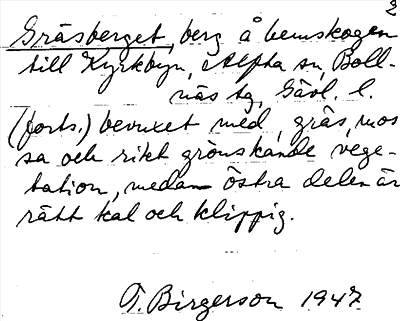 2
Gräsberget, berg å hemskogen
till Kyrkbyn, Alfta sn, Boll-
näs tg, Gävl. l.
(forts.) bevuxet med gräs, mos
sa och rikt grönskande vege-
tation, medan östra delen är
rätt kal och klippig.
T. Birgerson 1947